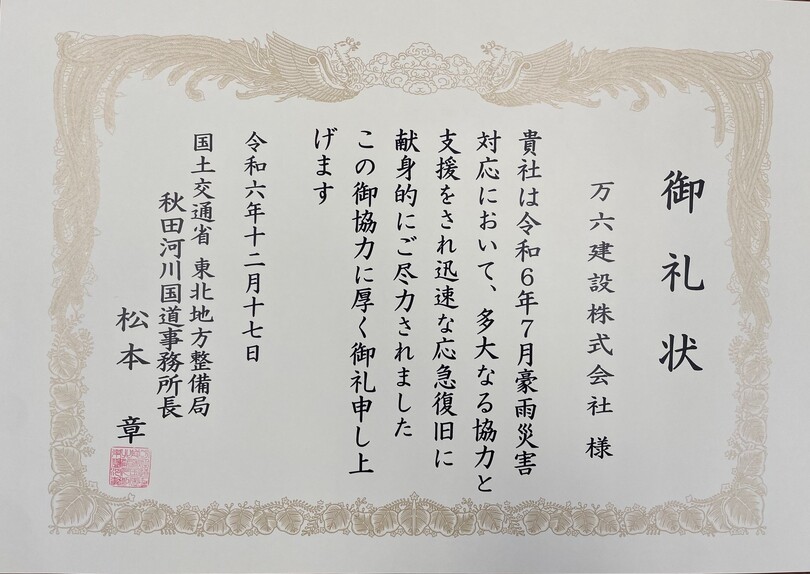 御礼状
万六建設株式会社 様
貴社は令和6年7月豪雨災害
対応において、多大なる協力と
支援をされ迅速な応急復旧に
献身的にご尽力されました
この御協力に厚く御礼申し上
げます
令和六年十二月十七日
国土交通省 東北地方整備局
秋田河川国道事務所長
松本 章